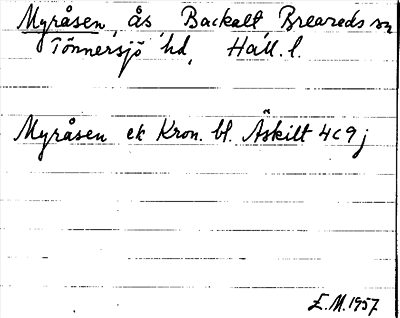 Myråsen, ås, Backalt, Breareds sn
Tönnersjö hd, Hall. l.
Myråsen ek Kron. bl. Äskilt 4c9j
E.M. 1957